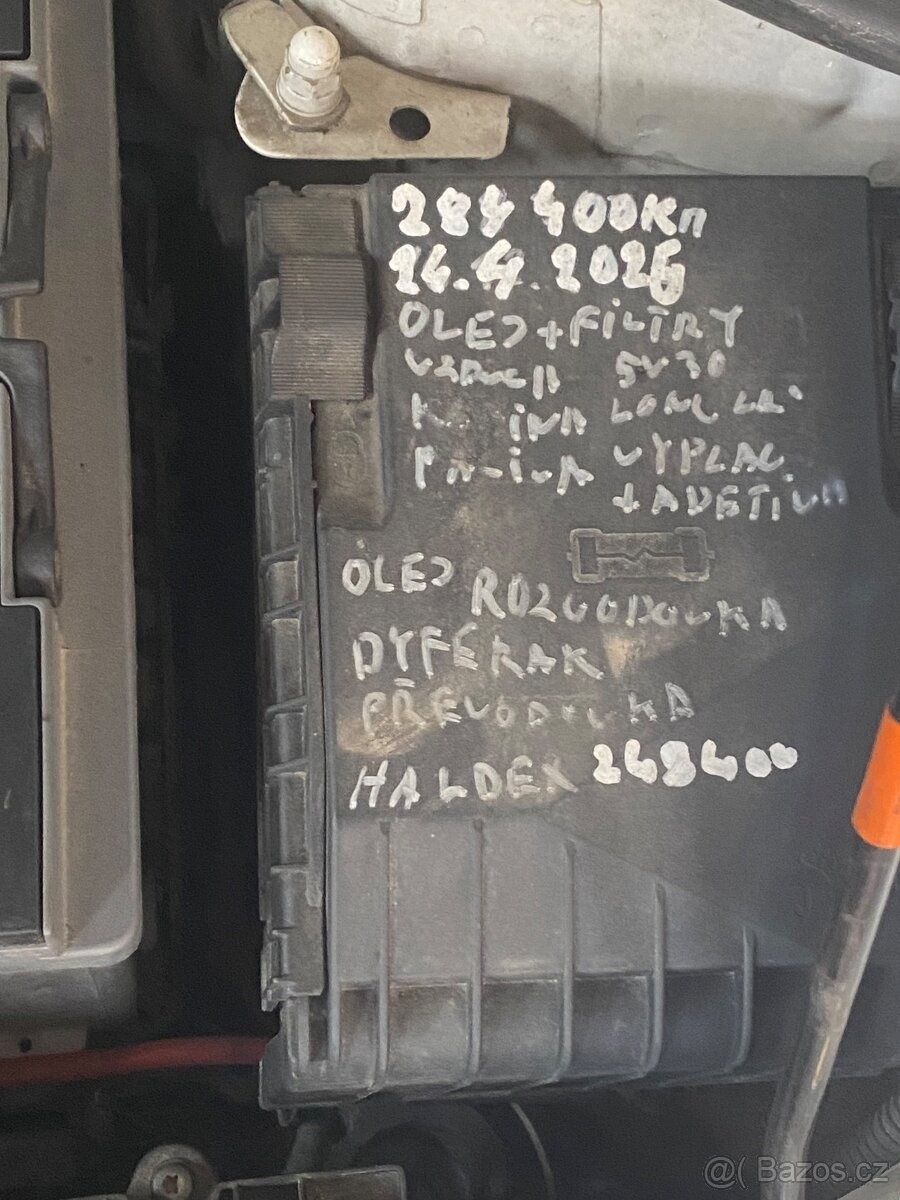 400Km
2026
OLEJ+FILTRY
VZDUCH 5W30
LONG
VYPLACH
+ADETIVA
OLEJ ROZVODOVKA
DYFERAK
PŘEVODOVKA
HALDEX 248400
@( Bazos.cz